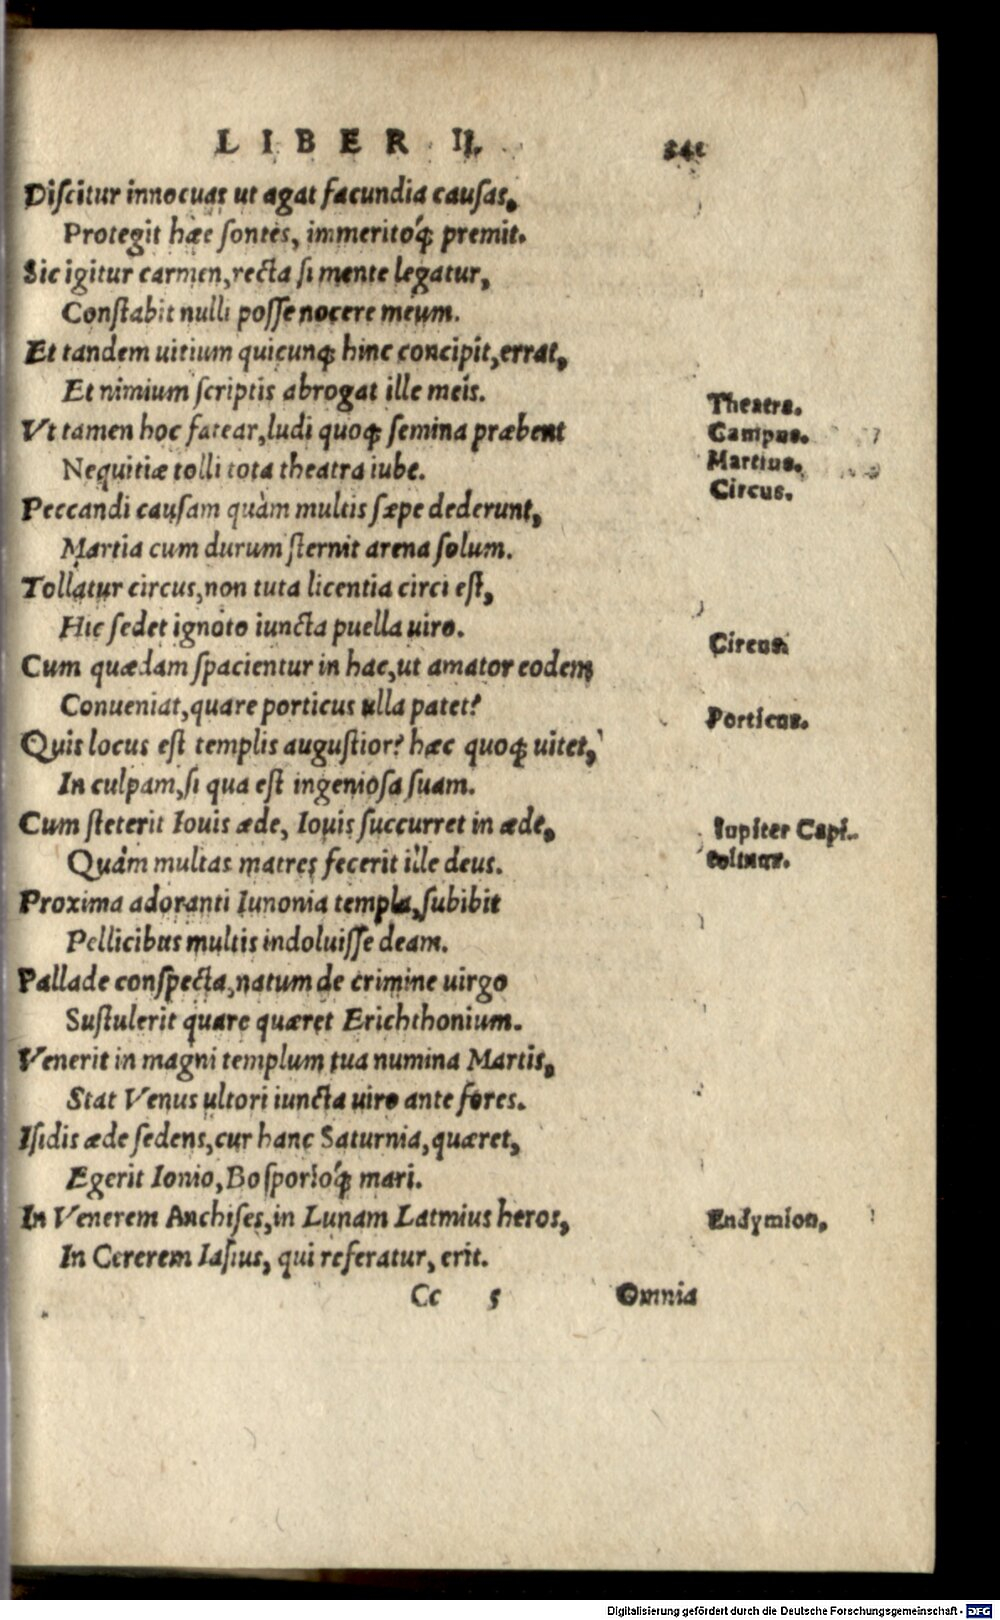 LIBER II.
Diſcitur innocuas ut agat facundia cauſas,
Protegit hæc ſontes, immeritóq́; premit.
Sic igitur carmen, recta ſi mente legatur,
Conſtabit nulli poſſe nocere meum.
Et tandem uitium quicunq; hinc concipit, errat,
Et nimium ſcriptis abrogat ille meis.
Theatra.
Vt tamen hoc fatear, ludi quoq; ſemina præbent
Campus.
Martius.
Nequitiæ tolli tota theatra iube.
Circus.
Peccandi cauſam quàm multis ſæpe dederunt,
Martia cum durum ſternit arena ſolum.
Tollatur circus, non tuta licentia circi eſt,
Hic ſedet ignoto iuncta puella uiro.
Circus.
Cum quædam ſpacientur in hac, ut amator eodem
Conueniat, quare porticus ulla patet?
Porticus.
Quis locus eſt templis auguſtior? hæc quoq; uitet,
In culpam, ſi qua eſt ingenioſa ſuam.
Cum ſteterit Iouis æde, Iouis ſuccurret in æde,
Iupiter Capi-
Quàm multas matres fecerit ille deus.
tolinus.
Proxima adoranti Iunonia templa, ſubibit
Pellicibus multis indoluiſſe deam.
Pallade conſpecta, natum de crimine uirgo
Suſtulerit quare quæret Erichthonium.
Venerit in magni templum tua numina Martis,
Stat Venus ultori iuncta uiro ante fores.
Iſidis æde ſedens, cur hanc Saturnia, quæret,
Egerit Ionio, Boſporióq́; mari.
In Venerem Anchiſes, in Lunam Latmius heros,
Endymion,
In Cererem Iaſius, qui referatur, erit.
Cc 5 Omnia
Digitalisierung gefördert durch die Deutsche Forschungsgemeinschaft - DFG